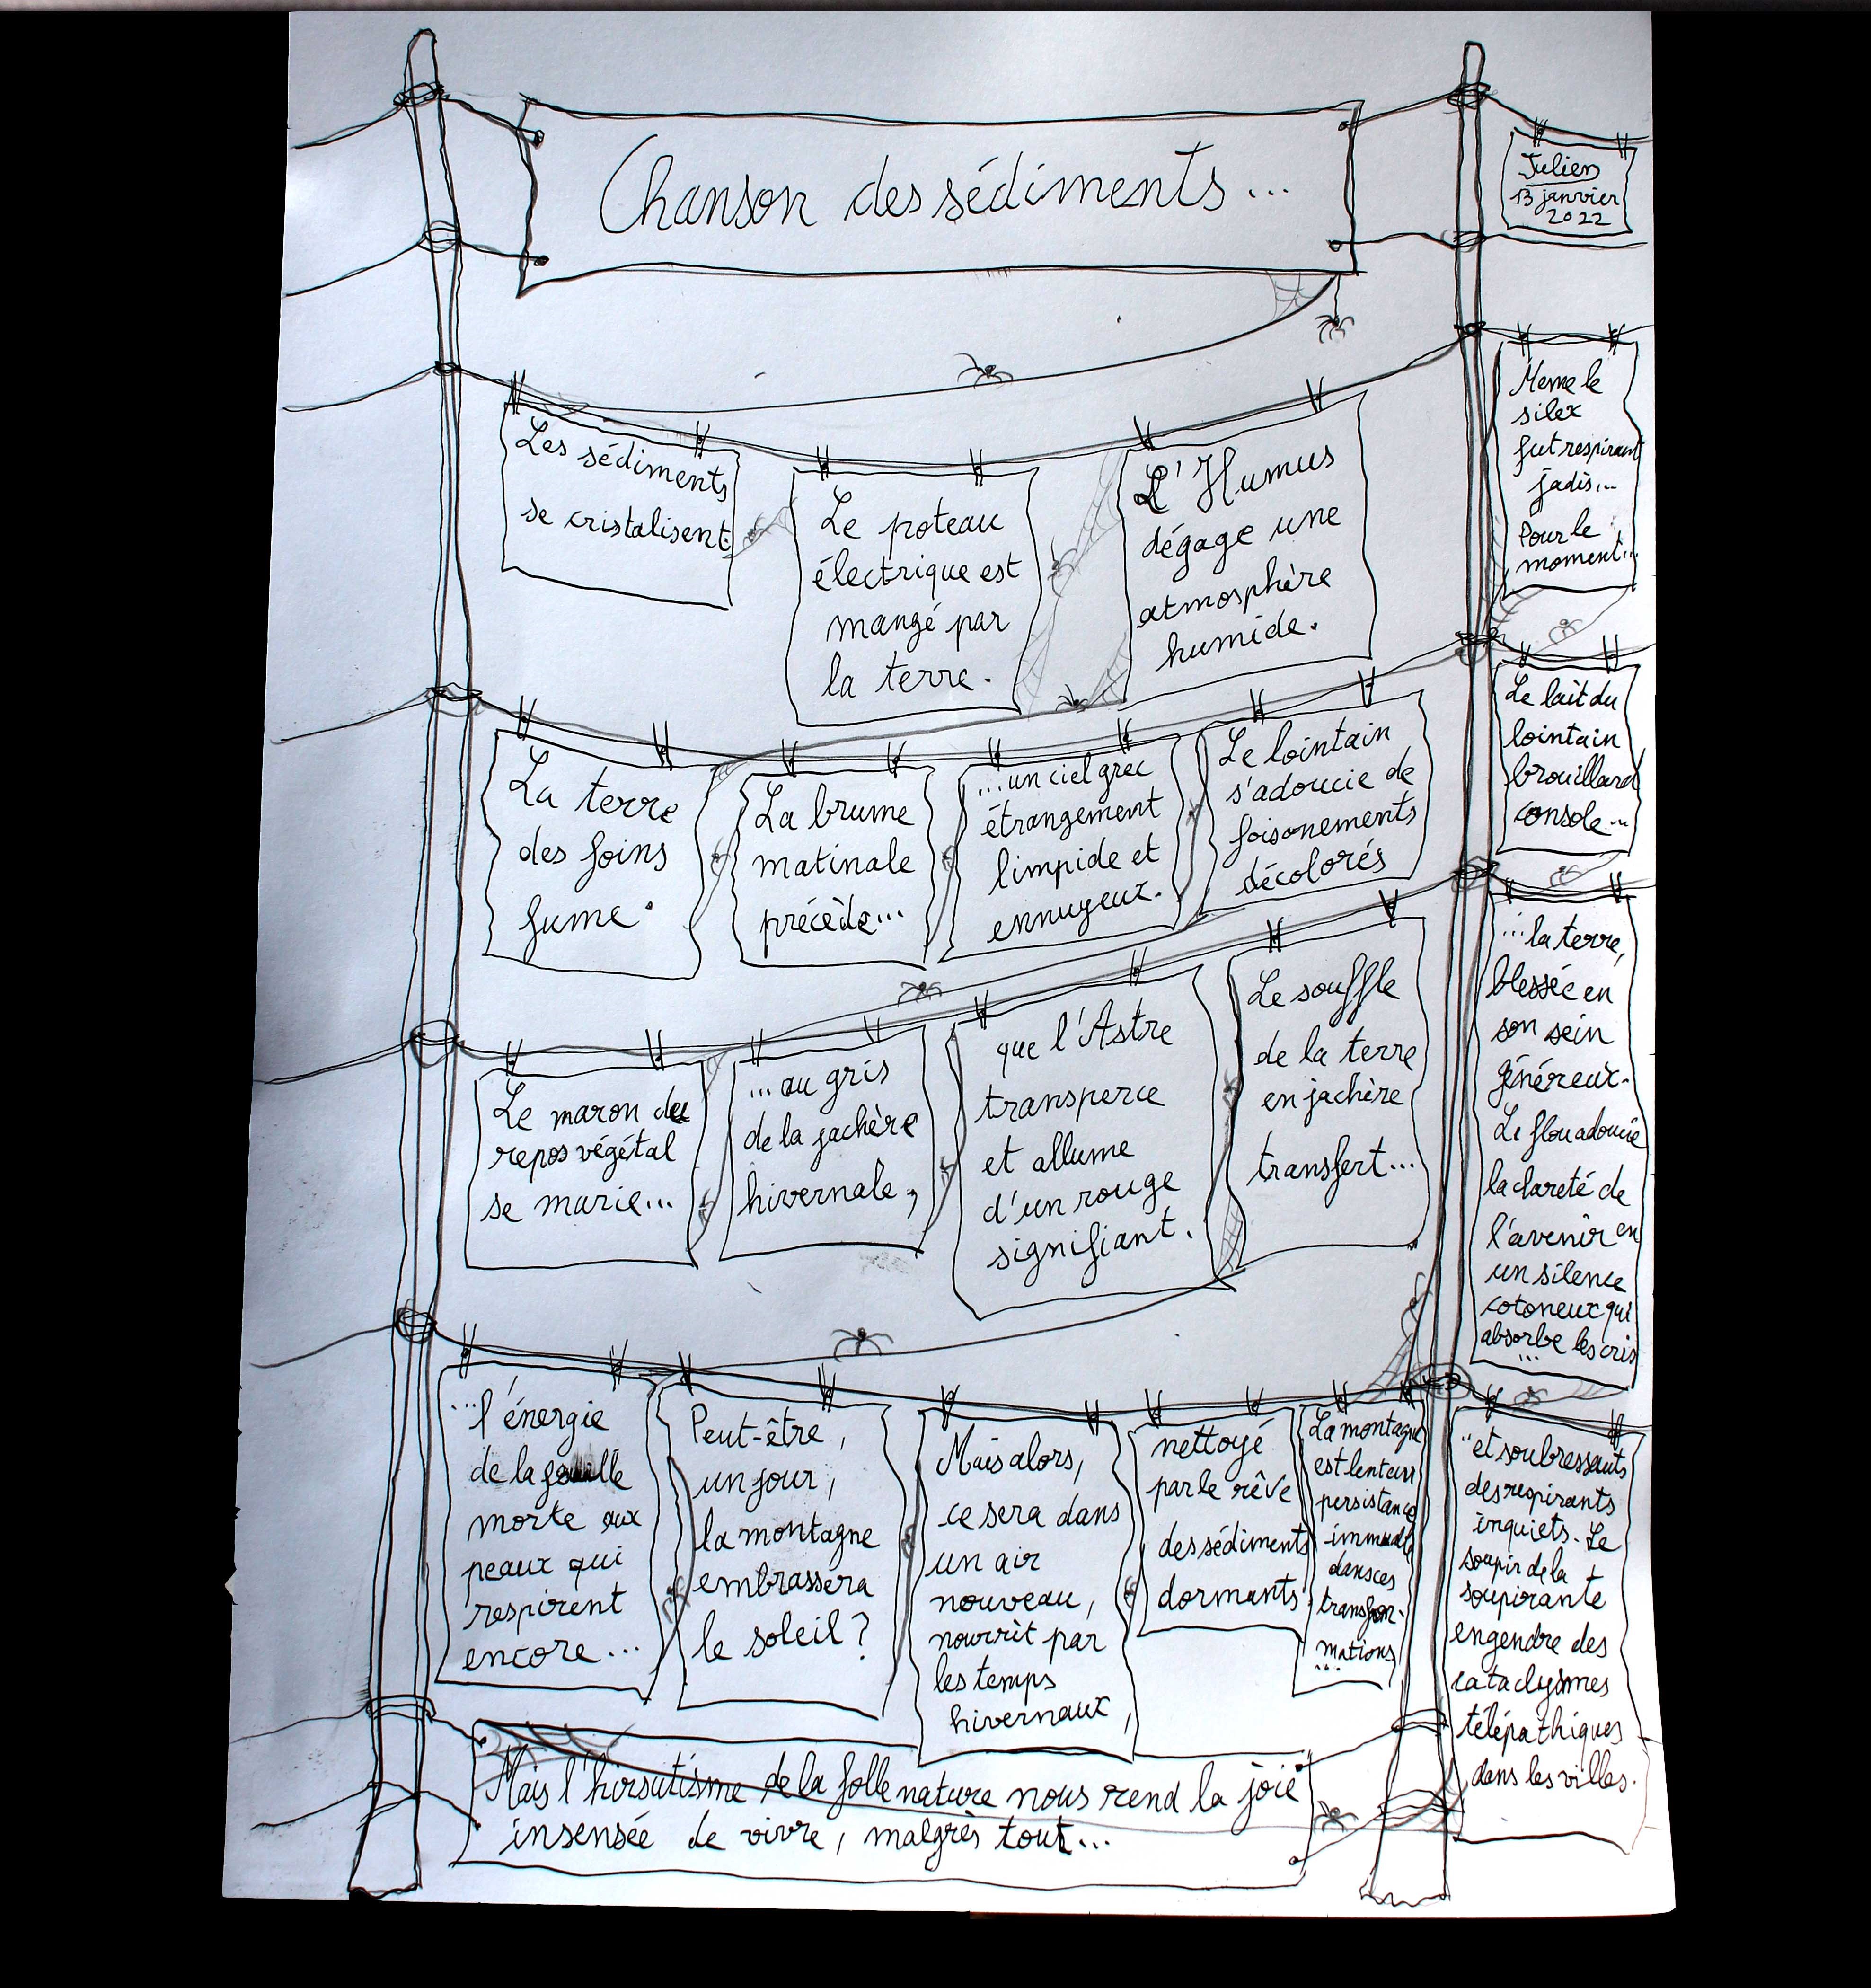 Chanson des sédiments...
Julien
13 janvier
2022
Les sédiments
se cristalisent.
Le poteau
électrique est
mangé par
la terre.
L'Humus
dégage une
atmosphère
humide.
La terre
des foins
fume.
La brume
matinale
précède...
...un ciel grec
étrangement
limpide et
ennuyeux.
Le lointain
s'adoucie de
foisonements
décolorés
Le maron du
repos végétal
se marie...
...au gris
de la jachère
hivernale,
que l'Astre
transperce
et allume
d'un rouge
signifiant.
Le souffle
de la terre
en jachère
transfert...
...l'énergie
de la
morte aux
peaux qui
respirent
encore...
Peut-être,
un jour,
la montagne
embrassera
le soleil?
Mais alors,
ce sera dans
un air
nouveau,
nourrit par
les temps
hivernaux,
nettoyé
par le rêve
des sédiments
dormants.
La montagne
est lent
persistance
immuable
dans ces
transfor-
mations
...
Meme le
silex
fut respirant
jadis...
Pour le
moment...
Le lait du
lointain
brouillard
console...
...la terre,
blessée en
son sein
généreux.
Le flou adoucie
la clareté de
l'avenir en
un silence
cotoneux qui
absorbe les cris
...
...et soubressauts
des respirants
inquiets. Le
soupir de la
soupirante
engendre des
cataclysmes
télépathiques
dans les villes.
Mais l'hirsutisme de la folle nature nous rend la joie
insensée de vivre, malgrès tout...